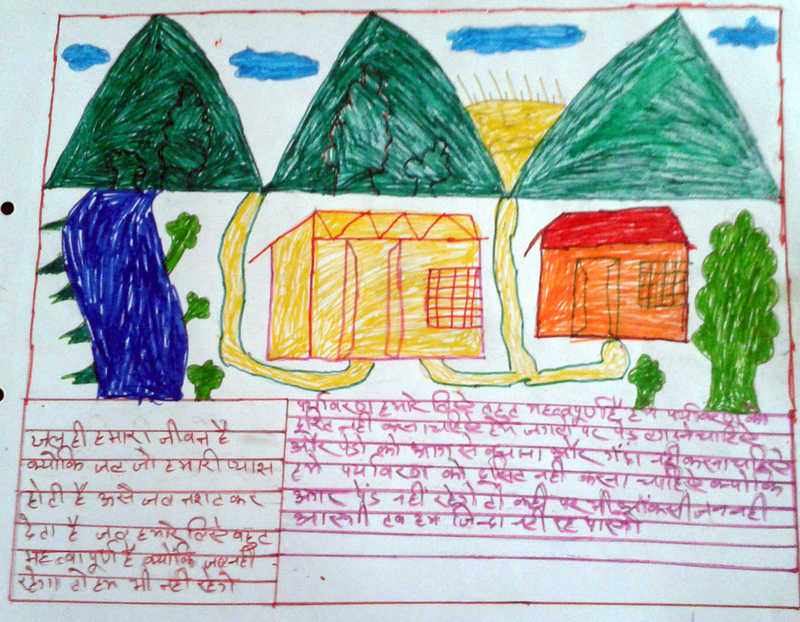 जल ही हमारी जीवन है
क्योकि जल जो हमारी प्यास
होती है उसे जल नशट कर
देता है जल हमारे लिऐ बहुट
महत्वा पूर्ण है क्योकि जल नही
रहेगा तो हम भी नही रहेगे
पर्यावरण हमारे लिऐ बहुट महत्वपूर्ण है हमे पर्यावरण को
दूसित नही करना चाहिऐ हमे जगलो पर पेड़ लगाने चाहिऐ
और पेडो को आग से बचाना और गंदा नही करना चाहिऐ
हमे पर्यावरण को दूसित नही करना चाहिऐ क्योकि
अगर पेड नही रहेगे तो कही पर भी नही
आऐगी तब हम जिन्दा नही रह पाऐगे